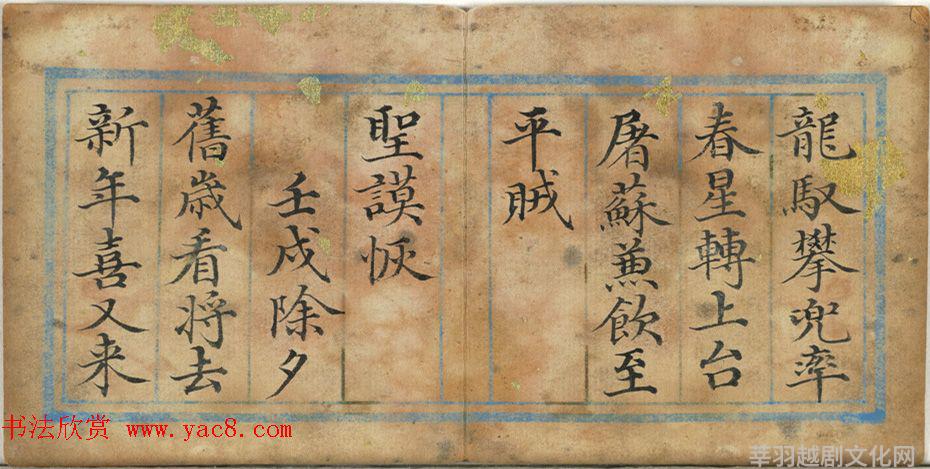 龍馭攀兜率
春星轉上台
屠蘇兼飲至
平賊
聖謨恢
壬戌除夕
舊歲看將去
新年喜又来
书法欣赏 www.yac8.com
莘羽越剧文化网